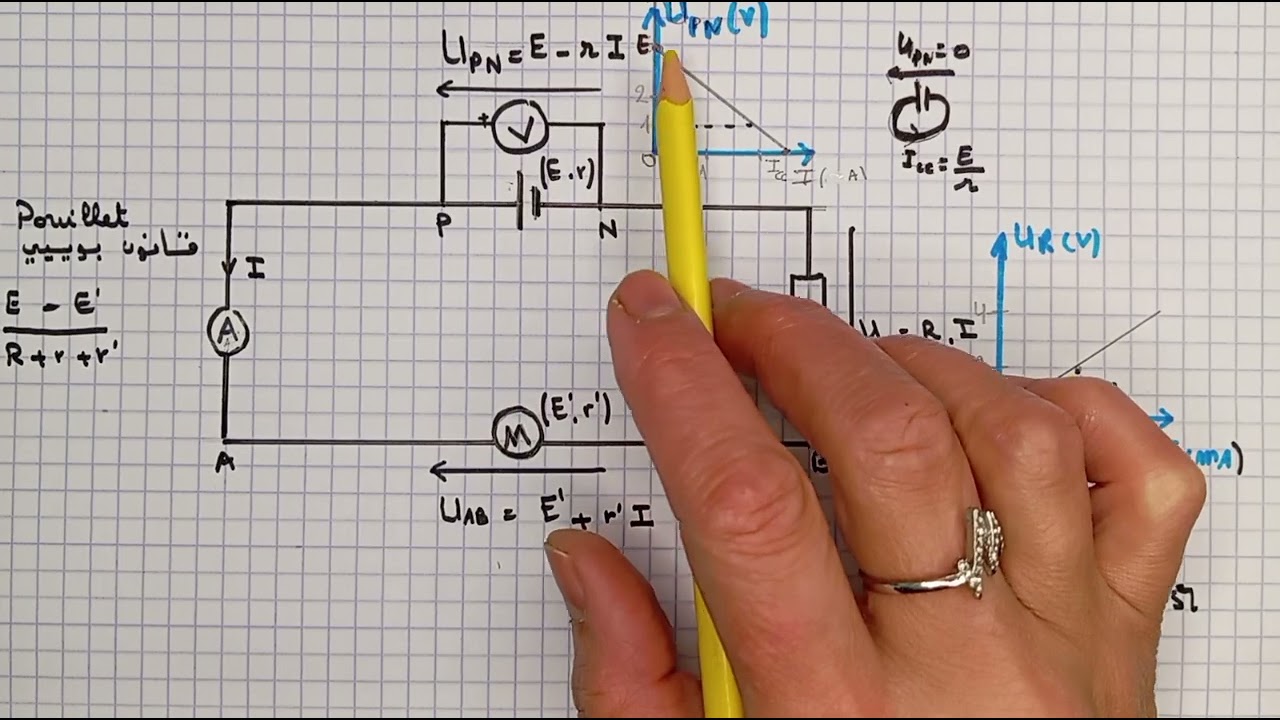 U_PN = E - r I
E
U_PN (V)
2
1
0
I_cc
I (A)
U_PN = 0
I_cc = E/r
+
V
(E, r)
P
N
Pouillet
قانون بوييي
E - E'
R + r + r'
I
A
A
M
(E', r')
U_AB = E' + r' I
B
R . I
U_R (V)
4
(mA)
Ω